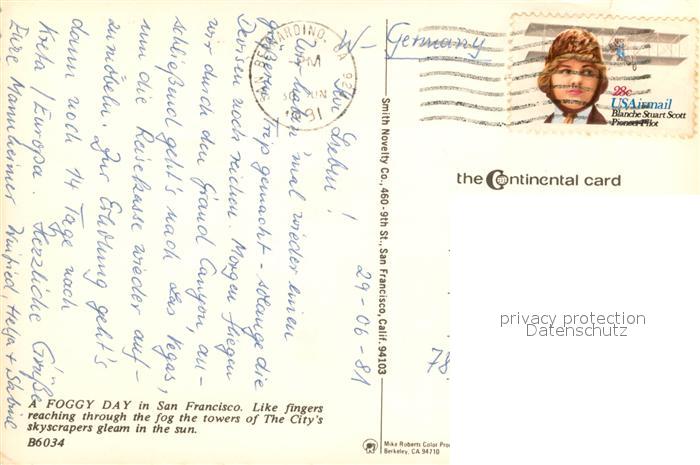 W-Germany
28c
USAirmail
Blanche Stuart Scott
Pioneer Pilot
SAN BERNARDINO, CA 92
PM
30 JUN
1981
29-06-81
Ihr Lieben!
Wir haben 'mal wieder einen
größeren Trip gemacht - solange die
Devisen noch reichen. Morgen fliegen
wir durch den Grand Canyon, an-
schließend geht's nach Las Vegas,
um die Reisekasse wieder auf-
zumöbeln. Zur Erholung geht's
dann noch 14 Tage nach
Kreta/Europa. Herzliche Grüße
Eure Mannheimer Winfried, Helga + Sabine
Smith Novelty Co., 460-9th St., San Francisco, Calif. 94103
the Continental card
78
privacy protection
Datenschutz
A FOGGY DAY in San Francisco. Like fingers
reaching through the fog the towers of The City's
skyscrapers gleam in the sun.
B6034
Mike Roberts Color Pro
Berkeley, CA 94710